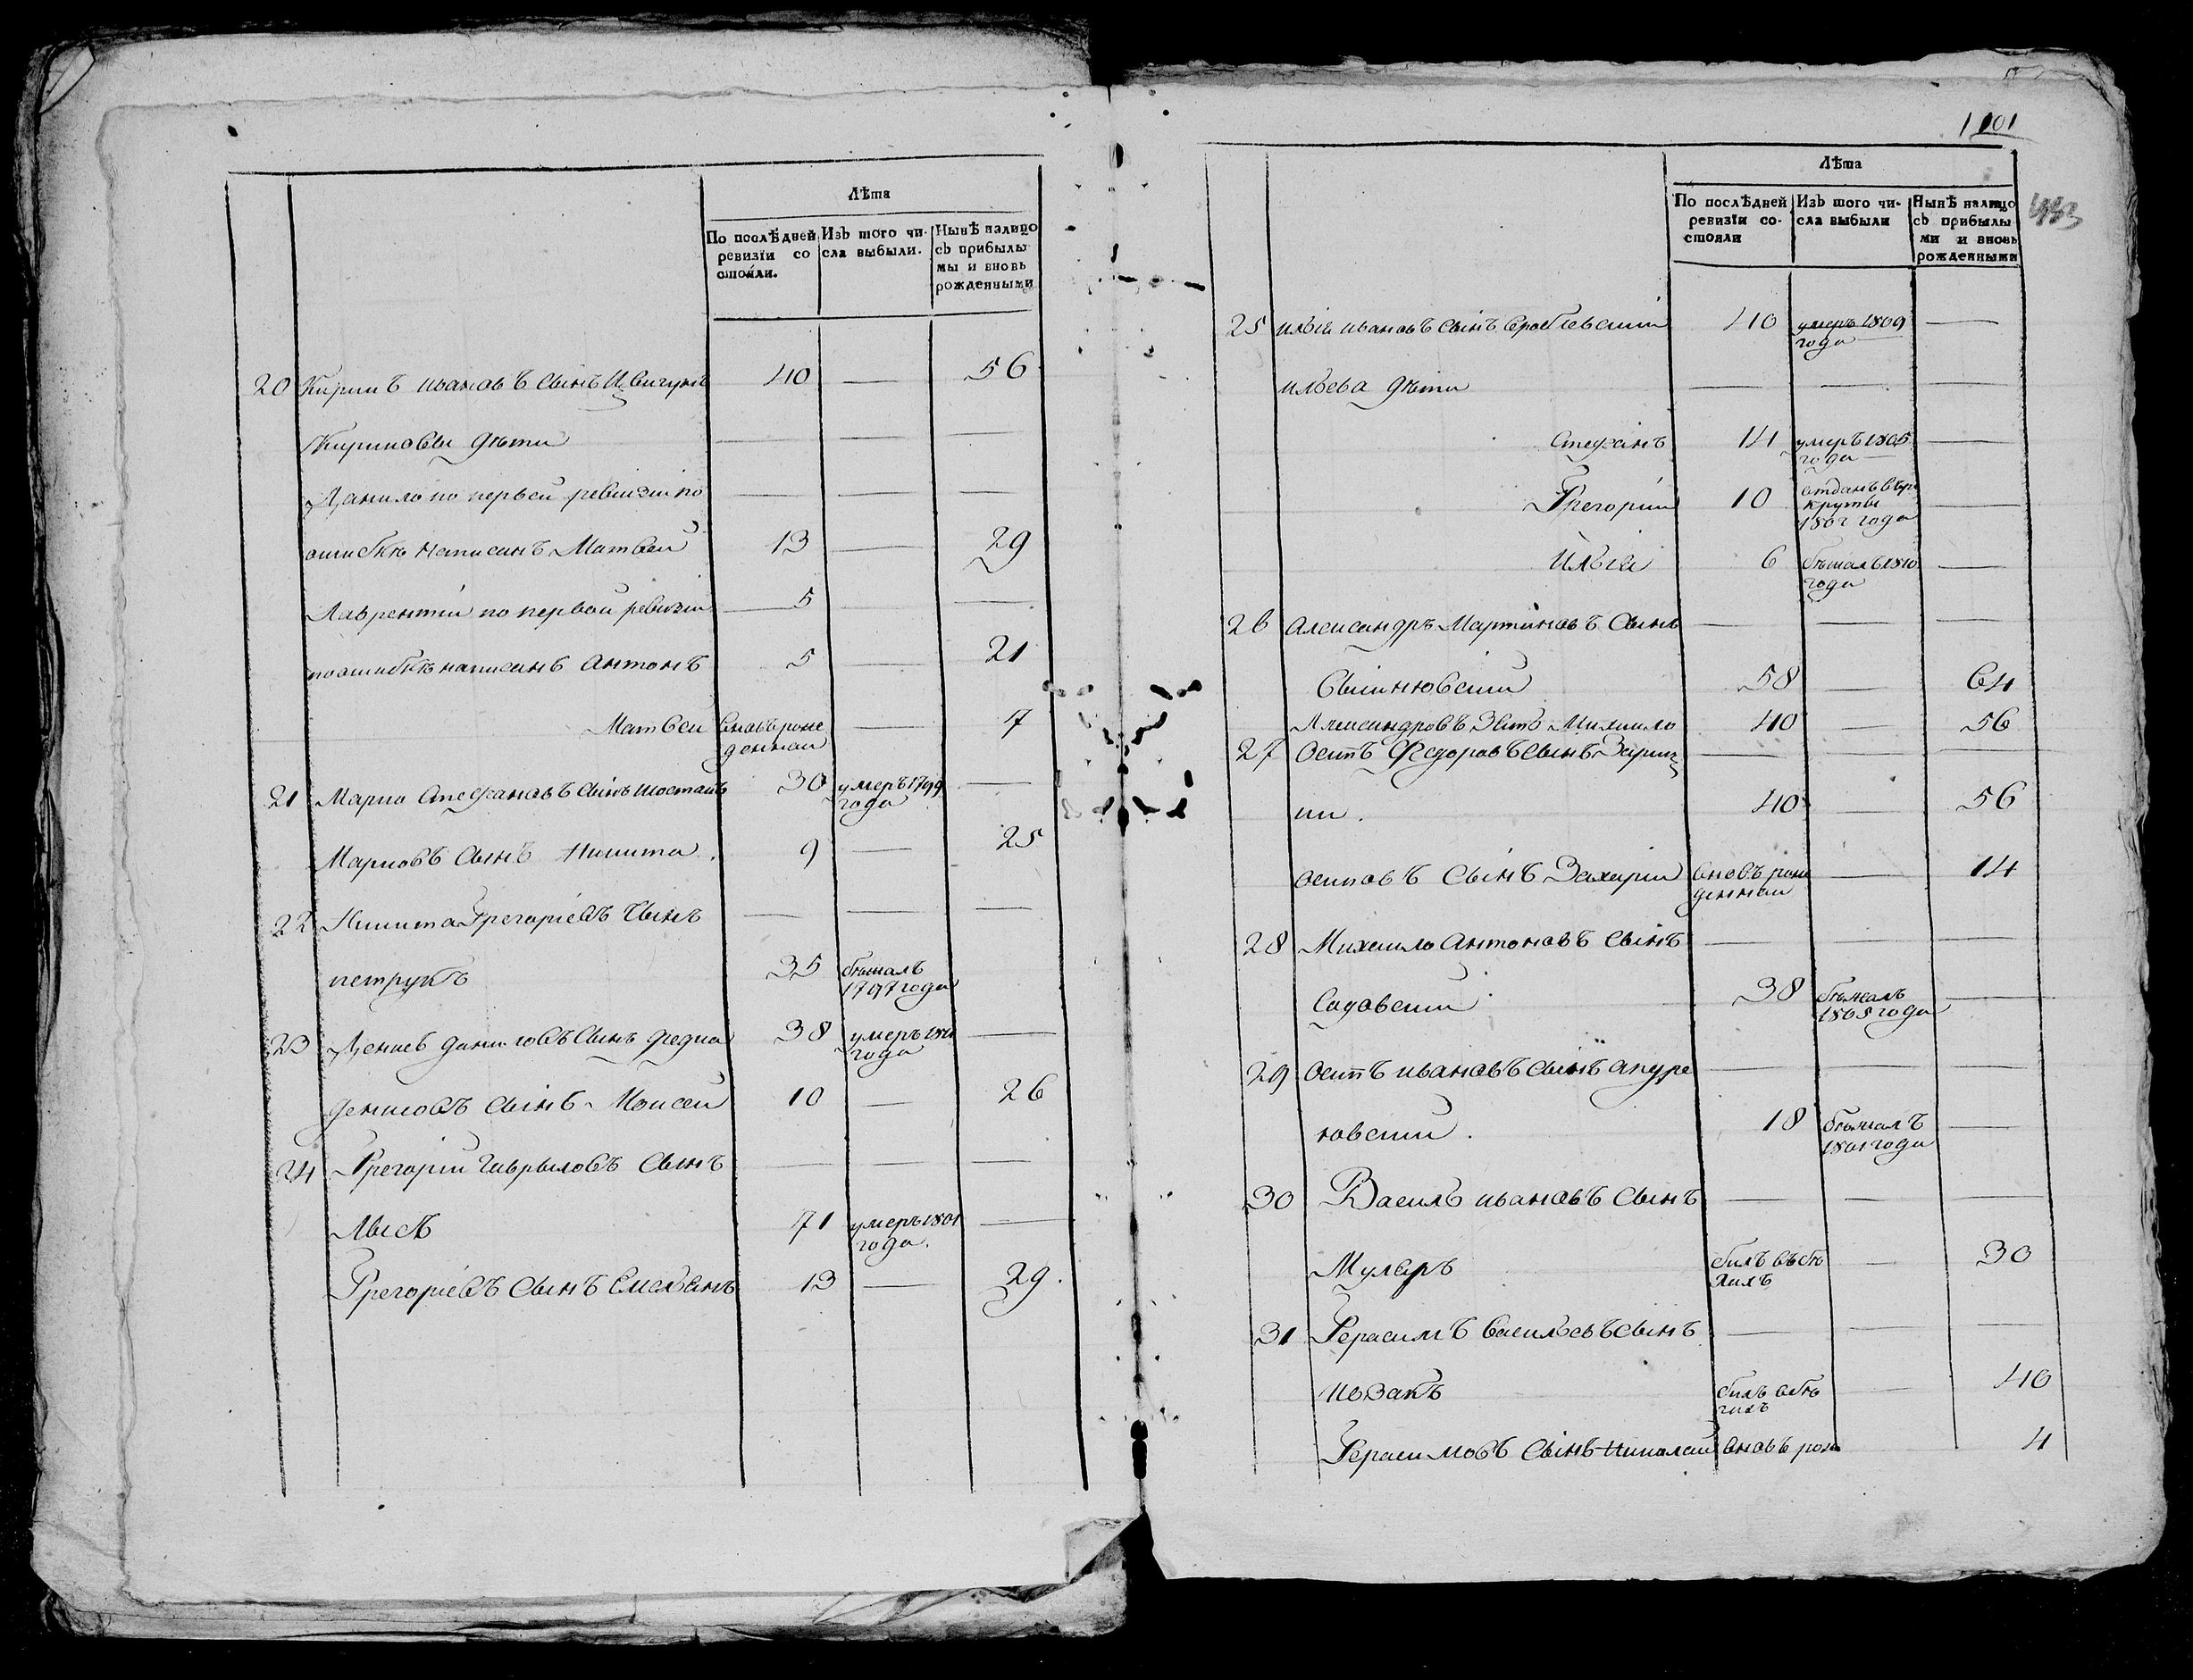 Лѣта
По послѣдней ревизїи со стояли.
Изъ того чи- сла выбыли.
Нынѣ налицо съ прибылы мы и вновь рожденными
20 Кирикъ ивановъ сынъ 40 — 56
Кириковы дѣти — — —
Данило по первой ревизiи по — — —
ошибкѣ написанъ Матвей 13 — 29
Лаврентiи по первой ревизiи 5 —
по ошибкѣ написанъ антонъ 5 — 21
Матвей вновь рож — 7
деннои
21 Марко Стефановъ сынъ шостакъ 30 умеръ 1799 —
года
Марковъ сынъ Никита 9 — 25
22 Никита Грегорiевъ сынъ — — —
петрукъ 35 бѣжалъ
1797 года
23 Денисъ даниловъ сынъ федка 38 умеръ —
года
денисовъ сынъ Моисей 10 — 26
24 Грегорiи гаврыловъ сынъ — — —
Лысъ 71 умеръ 1801 —
года.
Грегорiевъ сынъ Емельянъ 13 — 29.
1101
433
Лѣта
По послѣдней ревизїи со- стояли
Изъ того чи- сла выбыли
Нынѣ налицо съ прибылы- ми и вновь рожденными
25 илья ивановъ сынъ 40 умеръ 1809 —
года
ильева дѣти — — —
Стефанъ 14 умеръ 1805 —
года
Грегорiи 10 отданъ въ ре —
круты
1802 года
Илья 6 бѣжалъ 1810 —
года
26 Александръ Мартиновъ сынъ — — —
58 — 64
Александровъ зять Михаило 40 — 56
27 Осипъ Федоровъ сынъ Зариц — — —
ки. 40 — 56
осиповъ сынъ Захарiи вновь рож — 14
деннои
28 Михаило антоновъ сынъ — — —
Садовски 38 бѣжалъ —
1805 года
29 Осипъ ивановъ сынъ — — —
ковски. 18 бѣжалъ —
1801 года
30 Василь ивановъ сынъ — — —
Муляръ билъ въ бѣ — 30
гахъ
31 Герасимъ васильевъ сынъ — — —
козакъ билъ вбѣ — 40
гахъ
Герасимовъ сынъ Николаи вновь рож 4